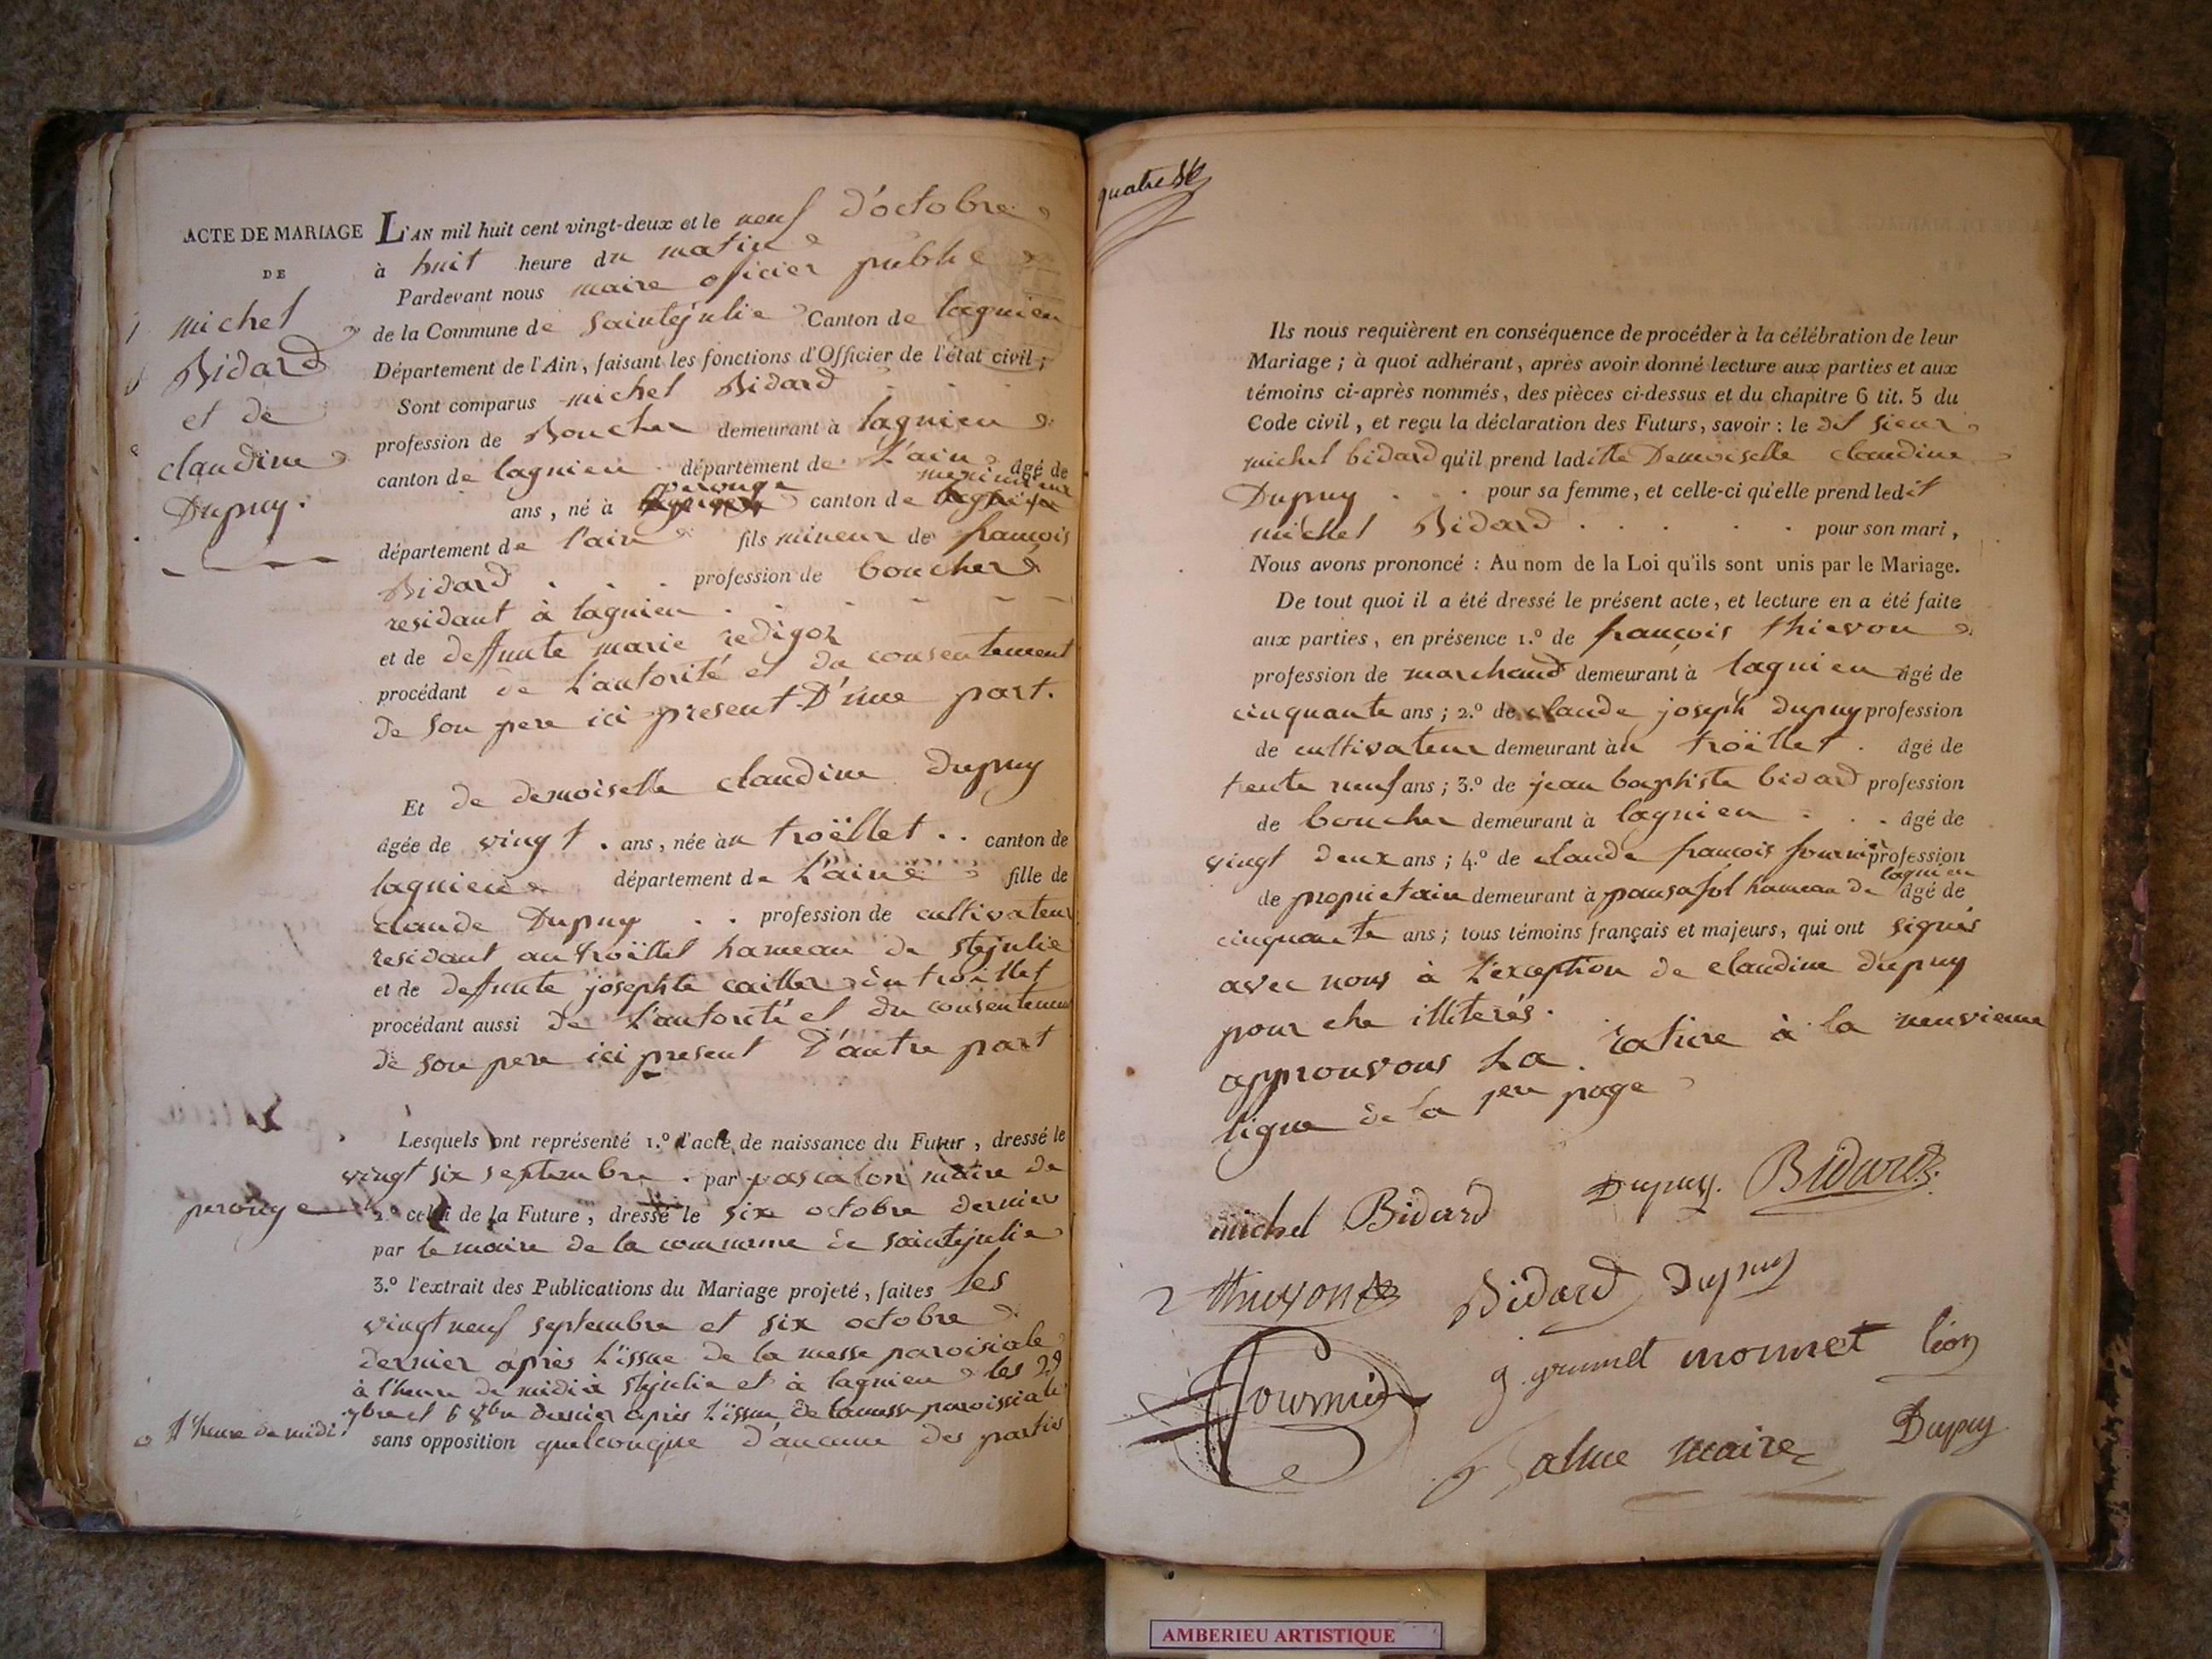 ACTE DE MARIAGE
DE
michel
Bidard
et de
claudine
Dupuy.
L'AN mil huit cent vingt-deux et le neuf d'octobre
à huit heure du matin
Pardevant nous maire oficier public
de la Commune de saintejulie Canton de lagnieu
Département de l'Ain, faisant les fonctions d'Officier de l'état civil;
Sont comparus michel Bidard
profession de Boucher demeurant à lagnieu
canton de lagnieu département de L'ain âgé de
perouge meximieux
ans, né à canton de
département de l'ain fils mineur de françois
Bidard profession de boucher
residant à lagnieu
et de deffunte marie redigoz
procédant de L'autorité et du consentement
de son pere ici present D'une part.
Et de demoiselle claudine Dupuy
âgée de vingt ans, née àu troëllet canton de
lagnieu département de L'ain fille de
claude Dupuy profession de cultivateur
residant au troëllet hameau de stejulie
et de deffunte josephte cailler du troëllet
procédant aussi de L'autorité et du consentement
de son pere ici present D'autre part
Lesquels ont représenté 1.º l'acte de naissance du Futur, dressé le
vingt six septembre par pascalon maire de
perouge 2.º celui de la Future, dressé le six octobre dernier
par le maire de la commune de saintejulie
3.º l'extrait des Publications du Mariage projeté, faites les
vingt neuf septembre et six octobre
dernier après L'issue de la messe paroisiale
à l'heure de midi à stejulie et à lagnieu les 29
7bre et 6 8bre dernier après L'issue de la messe paroissiale
à l'heure de midi sans opposition quelconque d'aucune des parties
quatre
Ils nous requièrent en conséquence de procéder à la célébration de leur
Mariage; à quoi adhérant, après avoir donné lecture aux parties et aux
témoins ci-après nommés, des pièces ci-dessus et du chapitre 6 tit. 5 du
Code civil, et reçu la déclaration des Futurs, savoir: le dit sieur
michel bidard qu'il prend laditte Demoiselle claudine
Dupuy pour sa femme, et celle-ci qu'elle prend ledit
michel Bidard pour son mari,
Nous avons prononcé: Au nom de la Loi qu'ils sont unis par le Mariage.
De tout quoi il a été dressé le présent acte, et lecture en a été faite
aux parties, en présence 1.º de françois thievon
profession de marchand demeurant à lagnieu âgé de
cinquante ans; 2.º de claude joseph dupuy profession
de cultivateur demeurant àu troëllet âgé de
trente neuf ans; 3.º de jean baptiste bidard profession
de boucher demeurant à lagnieu âgé de
vingt deux ans; 4.º de claude francois fournier profession
lagnieu
de proprietaire demeurant à pausafol hameau de âgé de
cinquante ans; tous témoins français et majeurs, qui ont signés
avec nous à L'exception de claudine dupuy
pour etre illiterés.
approuvons La rature à la neuvieme
ligne de la 1ere page
michel Bidard Dupuy. Bidard
thievon Bidard Dupuy
g. grumet monnet lion
fournier
maire Dupuy
AMBERIEU ARTISTIQUE